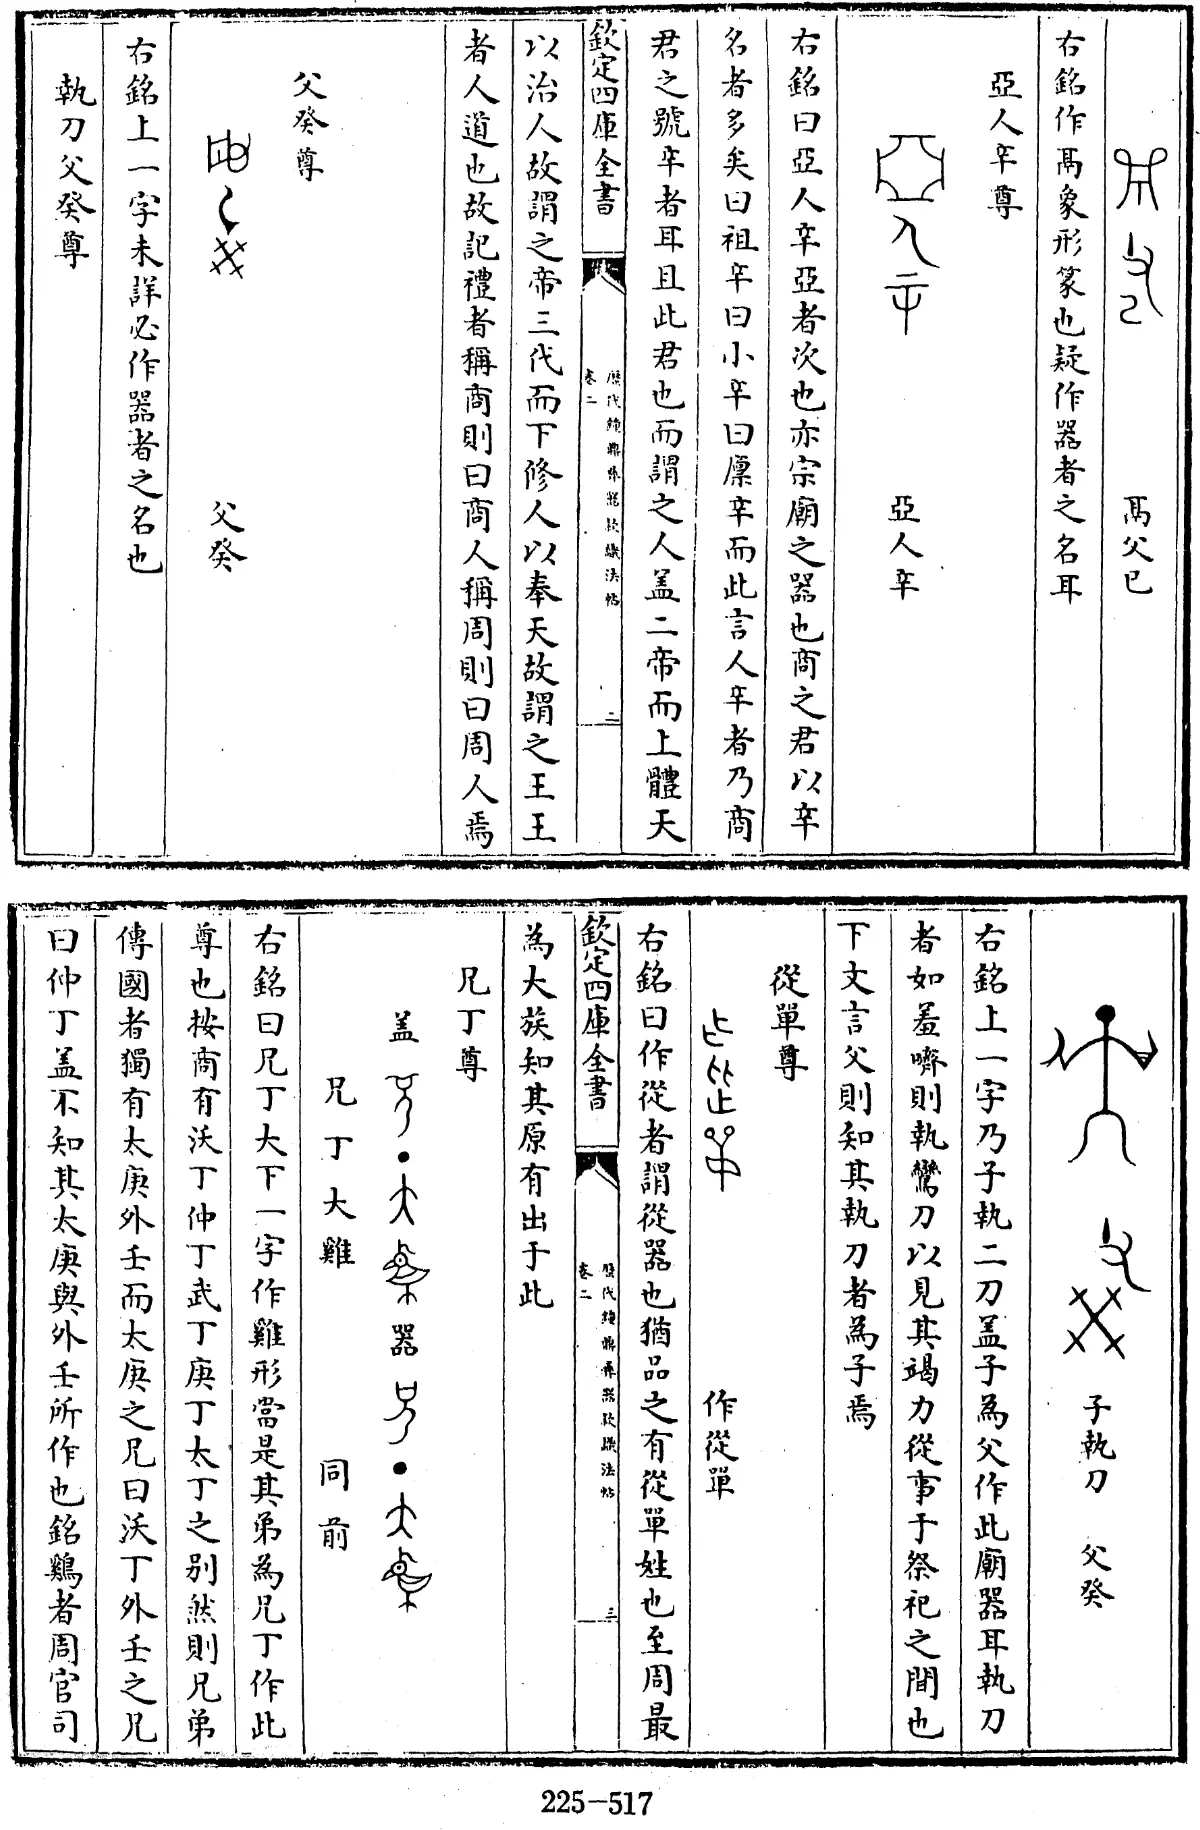 鬲父已
右銘作鬲象形篆也疑作器者之名耳
亞人辛尊
亞人辛
右銘曰亞人辛亞者次也亦宗廟之器也商之君以辛
名者多矣曰祖辛曰小辛曰廪辛而此言人辛者乃商
君之號辛者耳且此君也而謂之人盖二帝而上體天
欽定四庫全書
歷代鐘鼎彝器款識法帖
卷二
二
以治人故謂之帝三代而下修人以奉天故謂之王王
者人道也故記禮者稱商則曰商人稱周則曰周人焉
父癸尊
父癸
右銘上一字未詳必作器者之名也
執刀父癸尊
子執刀 父癸
右銘上一字乃子執二刀盖子為父作此廟器耳執刀
者如羞嚌則執鸞刀以見其竭力從事于祭祀之間也
下文言父則知其執刀者為子焉
從單尊
作從單
右銘曰作從者謂從器也猶品之有從單姓也至周最
欽定四庫全書
歷代鐘鼎彝器款識法帖
卷二
三
為大族知其原有出于此
兄丁尊
盖 器
兄丁大雞 同前
右銘曰兄丁大下一字作雞形當是其弟為兄丁作此
尊也按商有沃丁仲丁武丁庚丁太丁之别然則兄弟
傳國者獨有太庚外壬而太庚之兄曰沃丁外壬之兄
曰仲丁盖不知其太庚與外壬所作也銘鷄者周官司
225-517